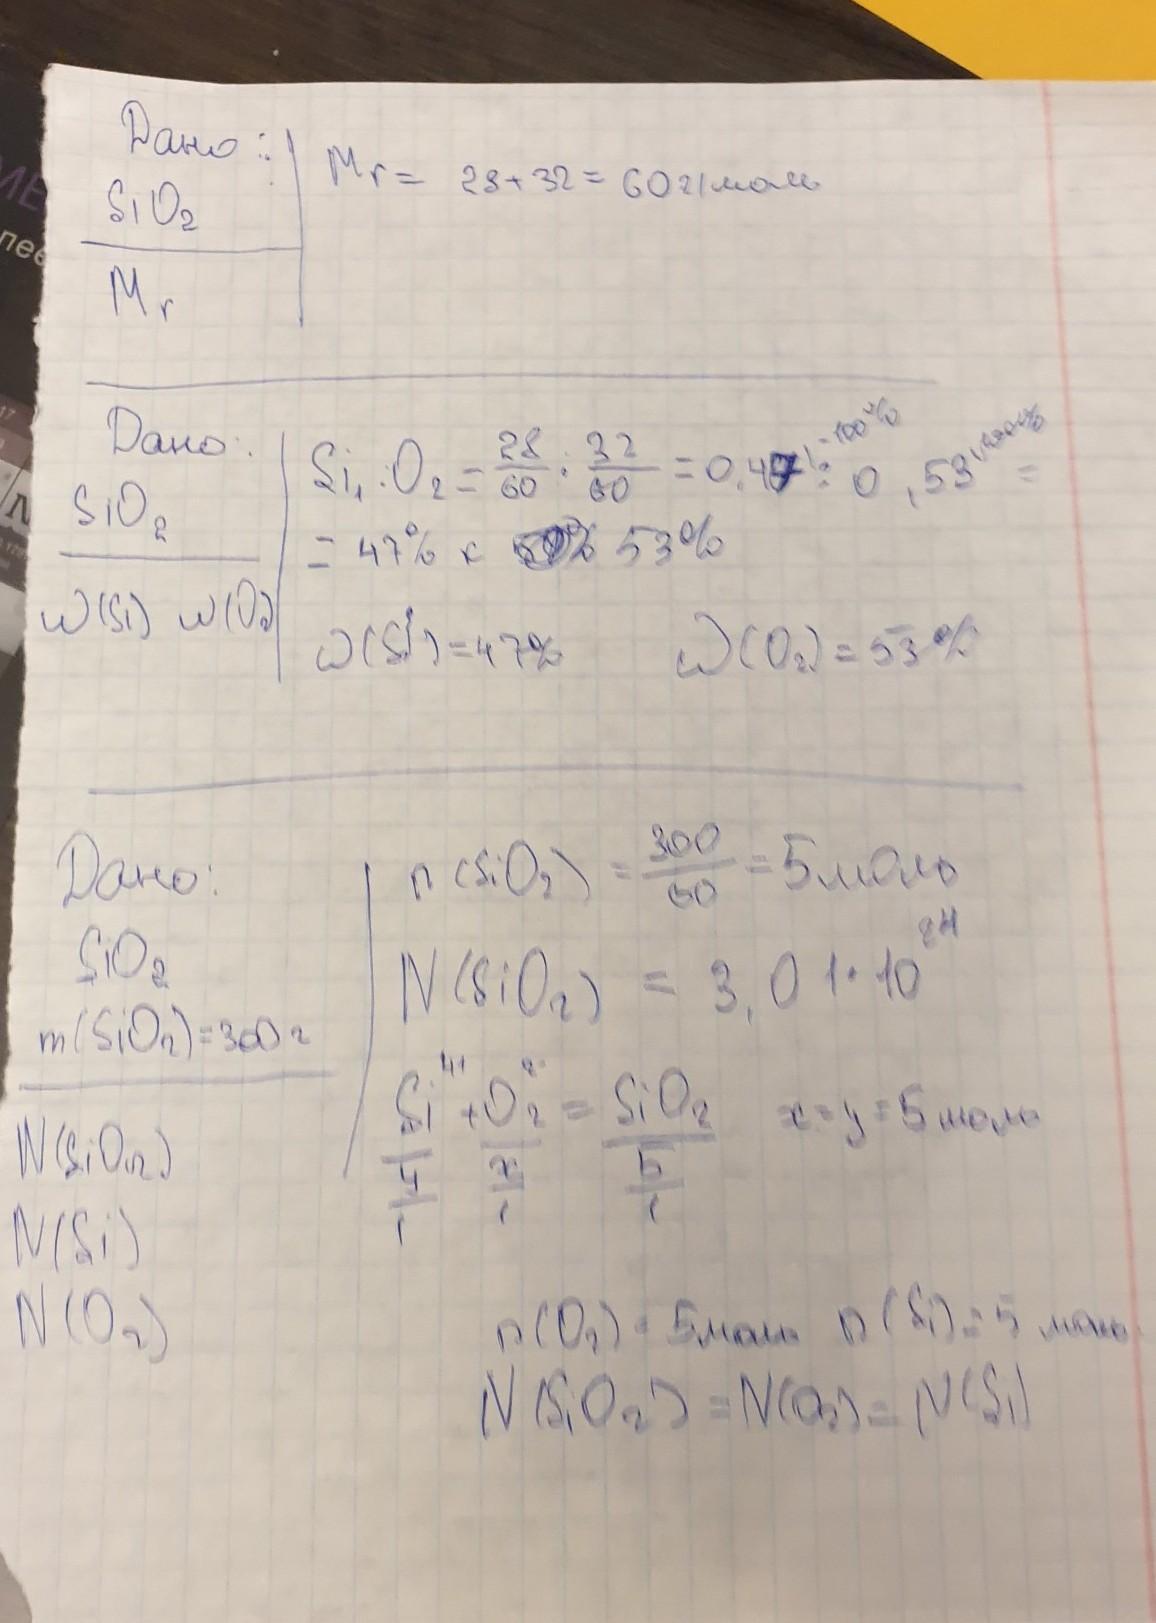 Дано:
SiO2
Mr
Mr = 28+32 = 60 г/моль
Дано:
SiO2
ω(Si) ω(O2)
Si, : O2 = 28/60 : 32/60 = 0,47 ·100% : 0,53 ·100% =
= 47% к 53%
ω(Si) = 47% ω(O2) = 53%
Дано:
SiO2
m(SiO2)=300г
N(SiO2)
N(Si)
N(O2)
n(SiO2) = 300/60 = 5моль
N(SiO2) = 3,01·10^24
Si^4+ + O2 = SiO2 x=y=5моль
y/1 x/1 5/1
n(O2) = 5моль n(Si) = 5 моль
N(SiO2) = N(O2) = N(Si)